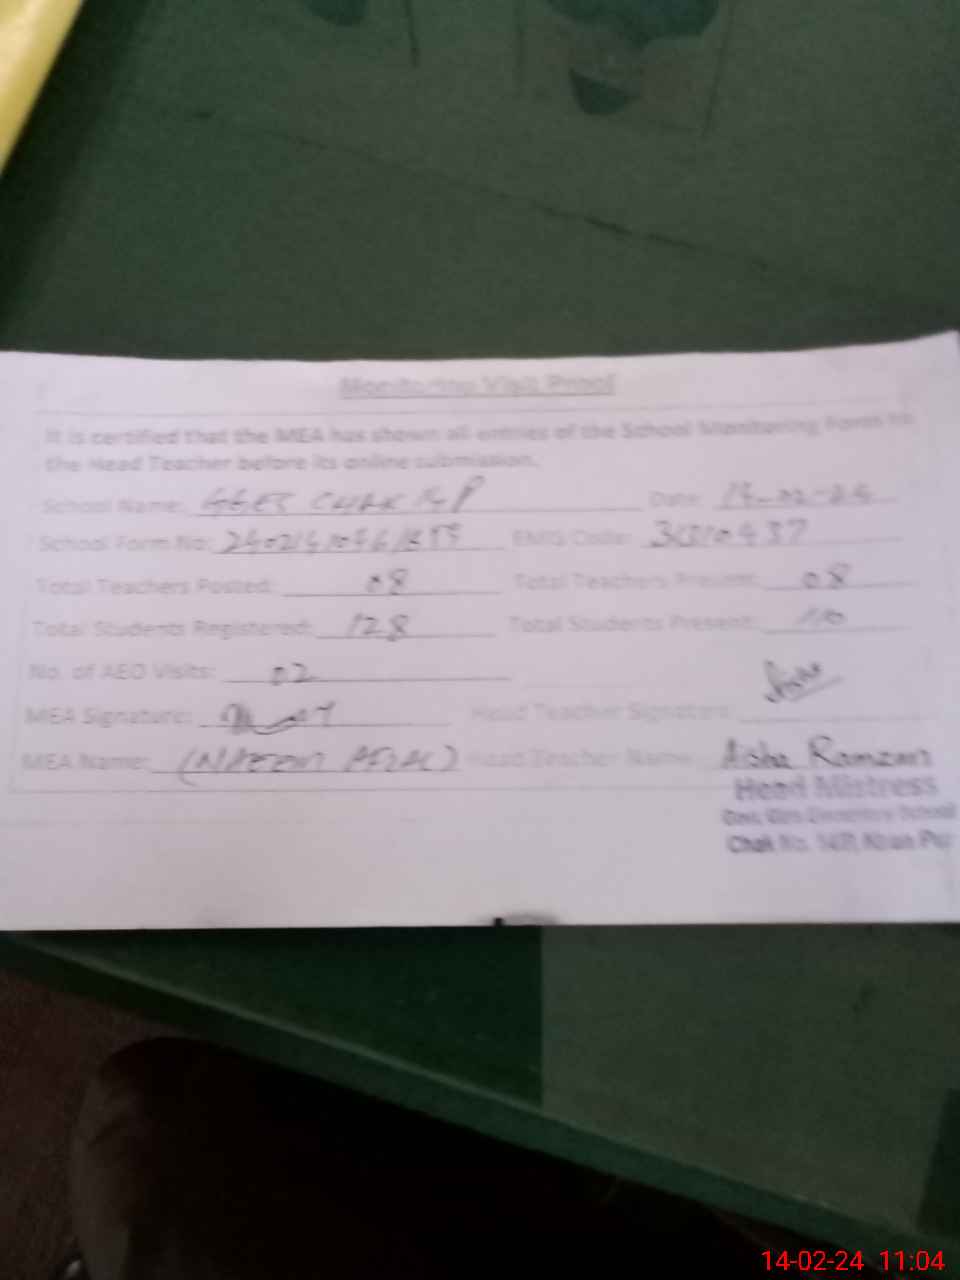 Monitoring Visit Proof
It is certified that the MEA has shown all entries of the School Monitoring Form to
the Head Teacher before its online submission.
School Name: GGES CHAK 14P Date: 14-02-24
School Form No: EMIS Code:
Total Teachers Posted: 08 Total Teachers Present: 08
Total Students Registered: 128 Total Students Present: 110
No. of AEO Visits: 02
MEA Signature: Head Teacher Signature:
MEA Name: Head Teacher Name: Aisha Ramzan
Head Mistress
Govt. Girls Elementary School
Chak No. 14P, Khan Pur
14-02-24 11:04